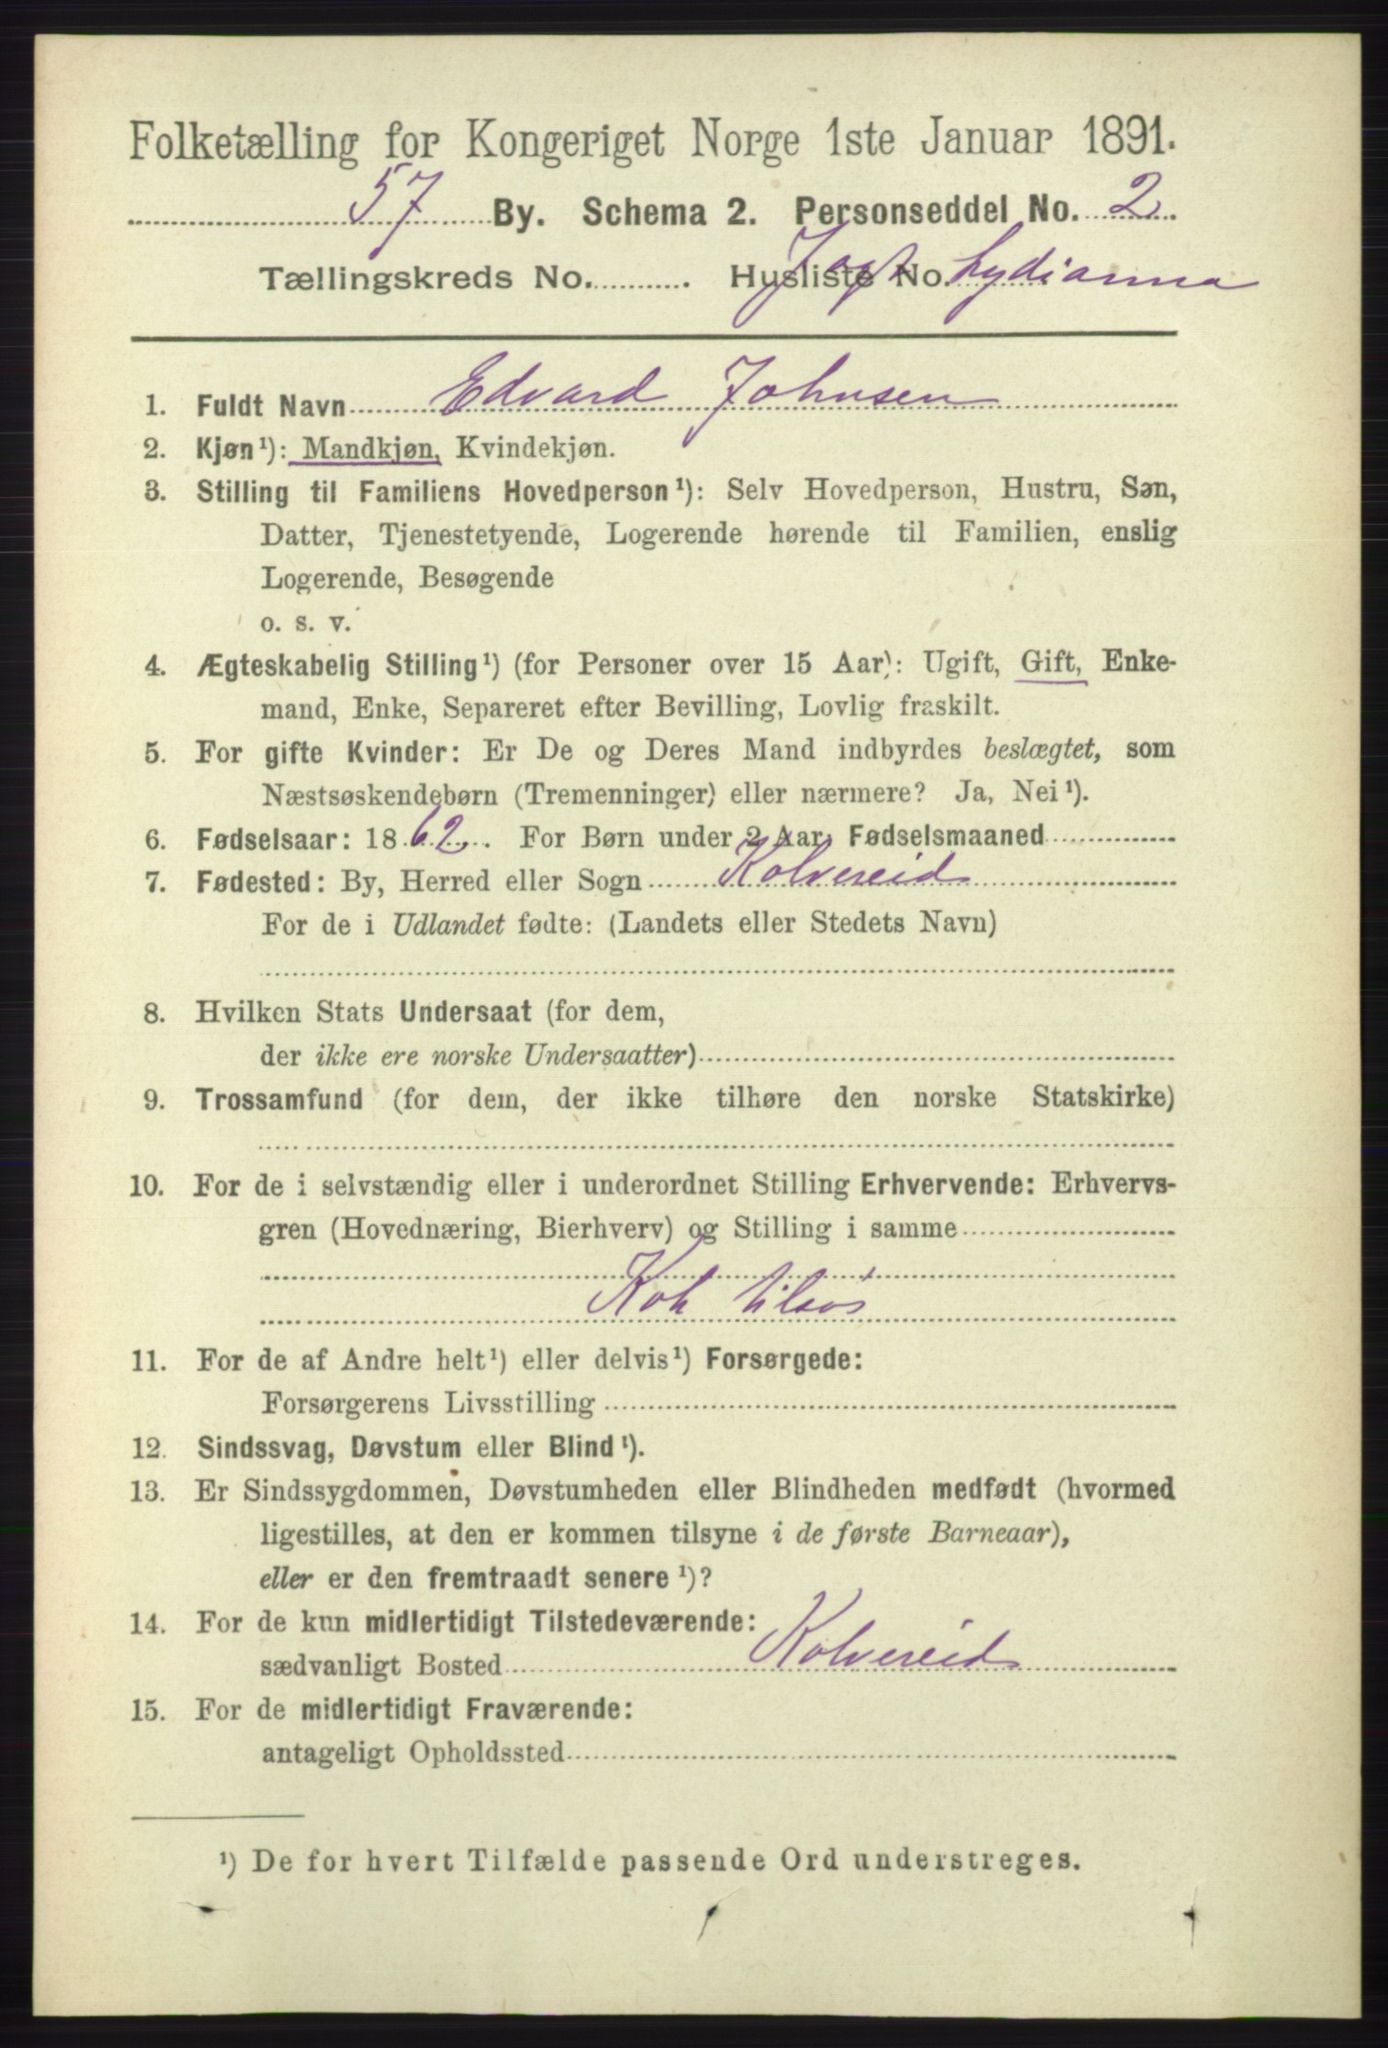 Folketælling for Kongeriget Norge 1ste Januar 1891.
57 By. Schema 2. Personseddel No. 2.
Tællingskreds No. . Husliste No. Jagt Lydianna
1. Fuldt Navn Edvard Johnsen
2. Kjøn¹): Mandkjøn, Kvindekjøn.
3. Stilling til Familiens Hovedperson¹): Selv Hovedperson, Hustru, Søn,
Datter, Tjenestetyende, Logerende hørende til Familien, enslig
Logerende, Besøgende
o. s. v.
4. Ægteskabelig Stilling¹) (for Personer over 15 Aar): Ugift, Gift, Enke-
mand, Enke, Separeret efter Bevilling, Lovlig fraskilt.
5. For gifte Kvinder: Er De og Deres Mand indbyrdes beslægtet, som
Næstsøskendebørn (Tremenninger) eller nærmere? Ja, Nei¹).
6. Fødselsaar: 1862. For Børn under 2 Aar, Fødselsmaaned
7. Fødested: By, Herred eller Sogn Kolvereid
For de i Udlandet fødte: (Landets eller Stedets Navn)
8. Hvilken Stats Undersaat (for dem,
der ikke ere norske Undersaatter)
9. Trossamfund (for dem, der ikke tilhøre den norske Statskirke)
10. For de i selvstændig eller i underordnet Stilling Erhvervende: Erhvervs-
gren (Hovednæring, Bierhverv) og Stilling i samme
Kok tilsøs
11. For de af Andre helt¹) eller delvis¹) Forsørgede:
Forsørgerens Livsstilling
12. Sindssvag, Døvstum eller Blind¹).
13. Er Sindssygdommen, Døvstumheden eller Blindheden medfødt (hvormed
ligestilles, at den er kommen tilsyne i de første Barneaar),
eller er den fremtraadt senere¹)?
14. For de kun midlertidigt Tilstedeværende:
sædvanligt Bosted Kolvereid
15. For de midlertidigt Fraværende:
antageligt Opholdssted
¹) De for hvert Tilfælde passende Ord understreges.